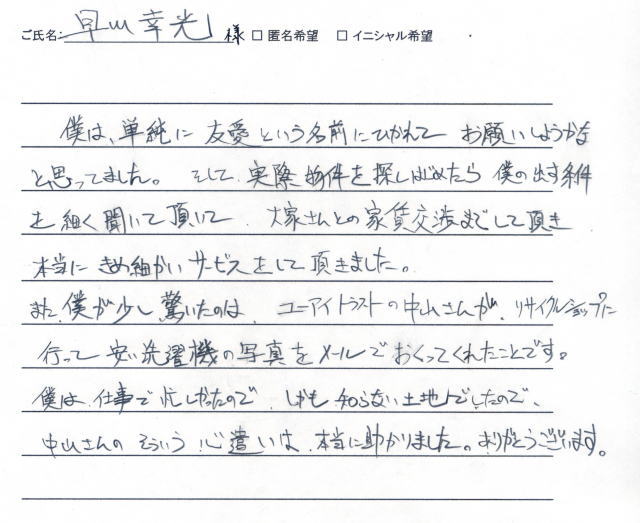 ご氏名: 早山 幸光 様 □ 匿名希望 □ イニシャル希望
僕は、単純に 友愛という名前にひかれて お願いしようかな
と思ってました。 そして、実際物件を探しはじめたら 僕の出す条件
を細く聞いて頂いて 大家さんとの家賃交渉までして頂き
本当に きめ細かい サービスをして頂きました。
また、僕が少し驚いたのは、 ユーアイトラストの中山さんが、リサイクルショップに
行って 安い洗濯機の写真をメールでおくってくれたことです。
僕は、仕事で忙しかったので、しかも 知らない土地でしたので、
中山さんの そういう 心遣いは、本当に助かりました。ありがとうございます。